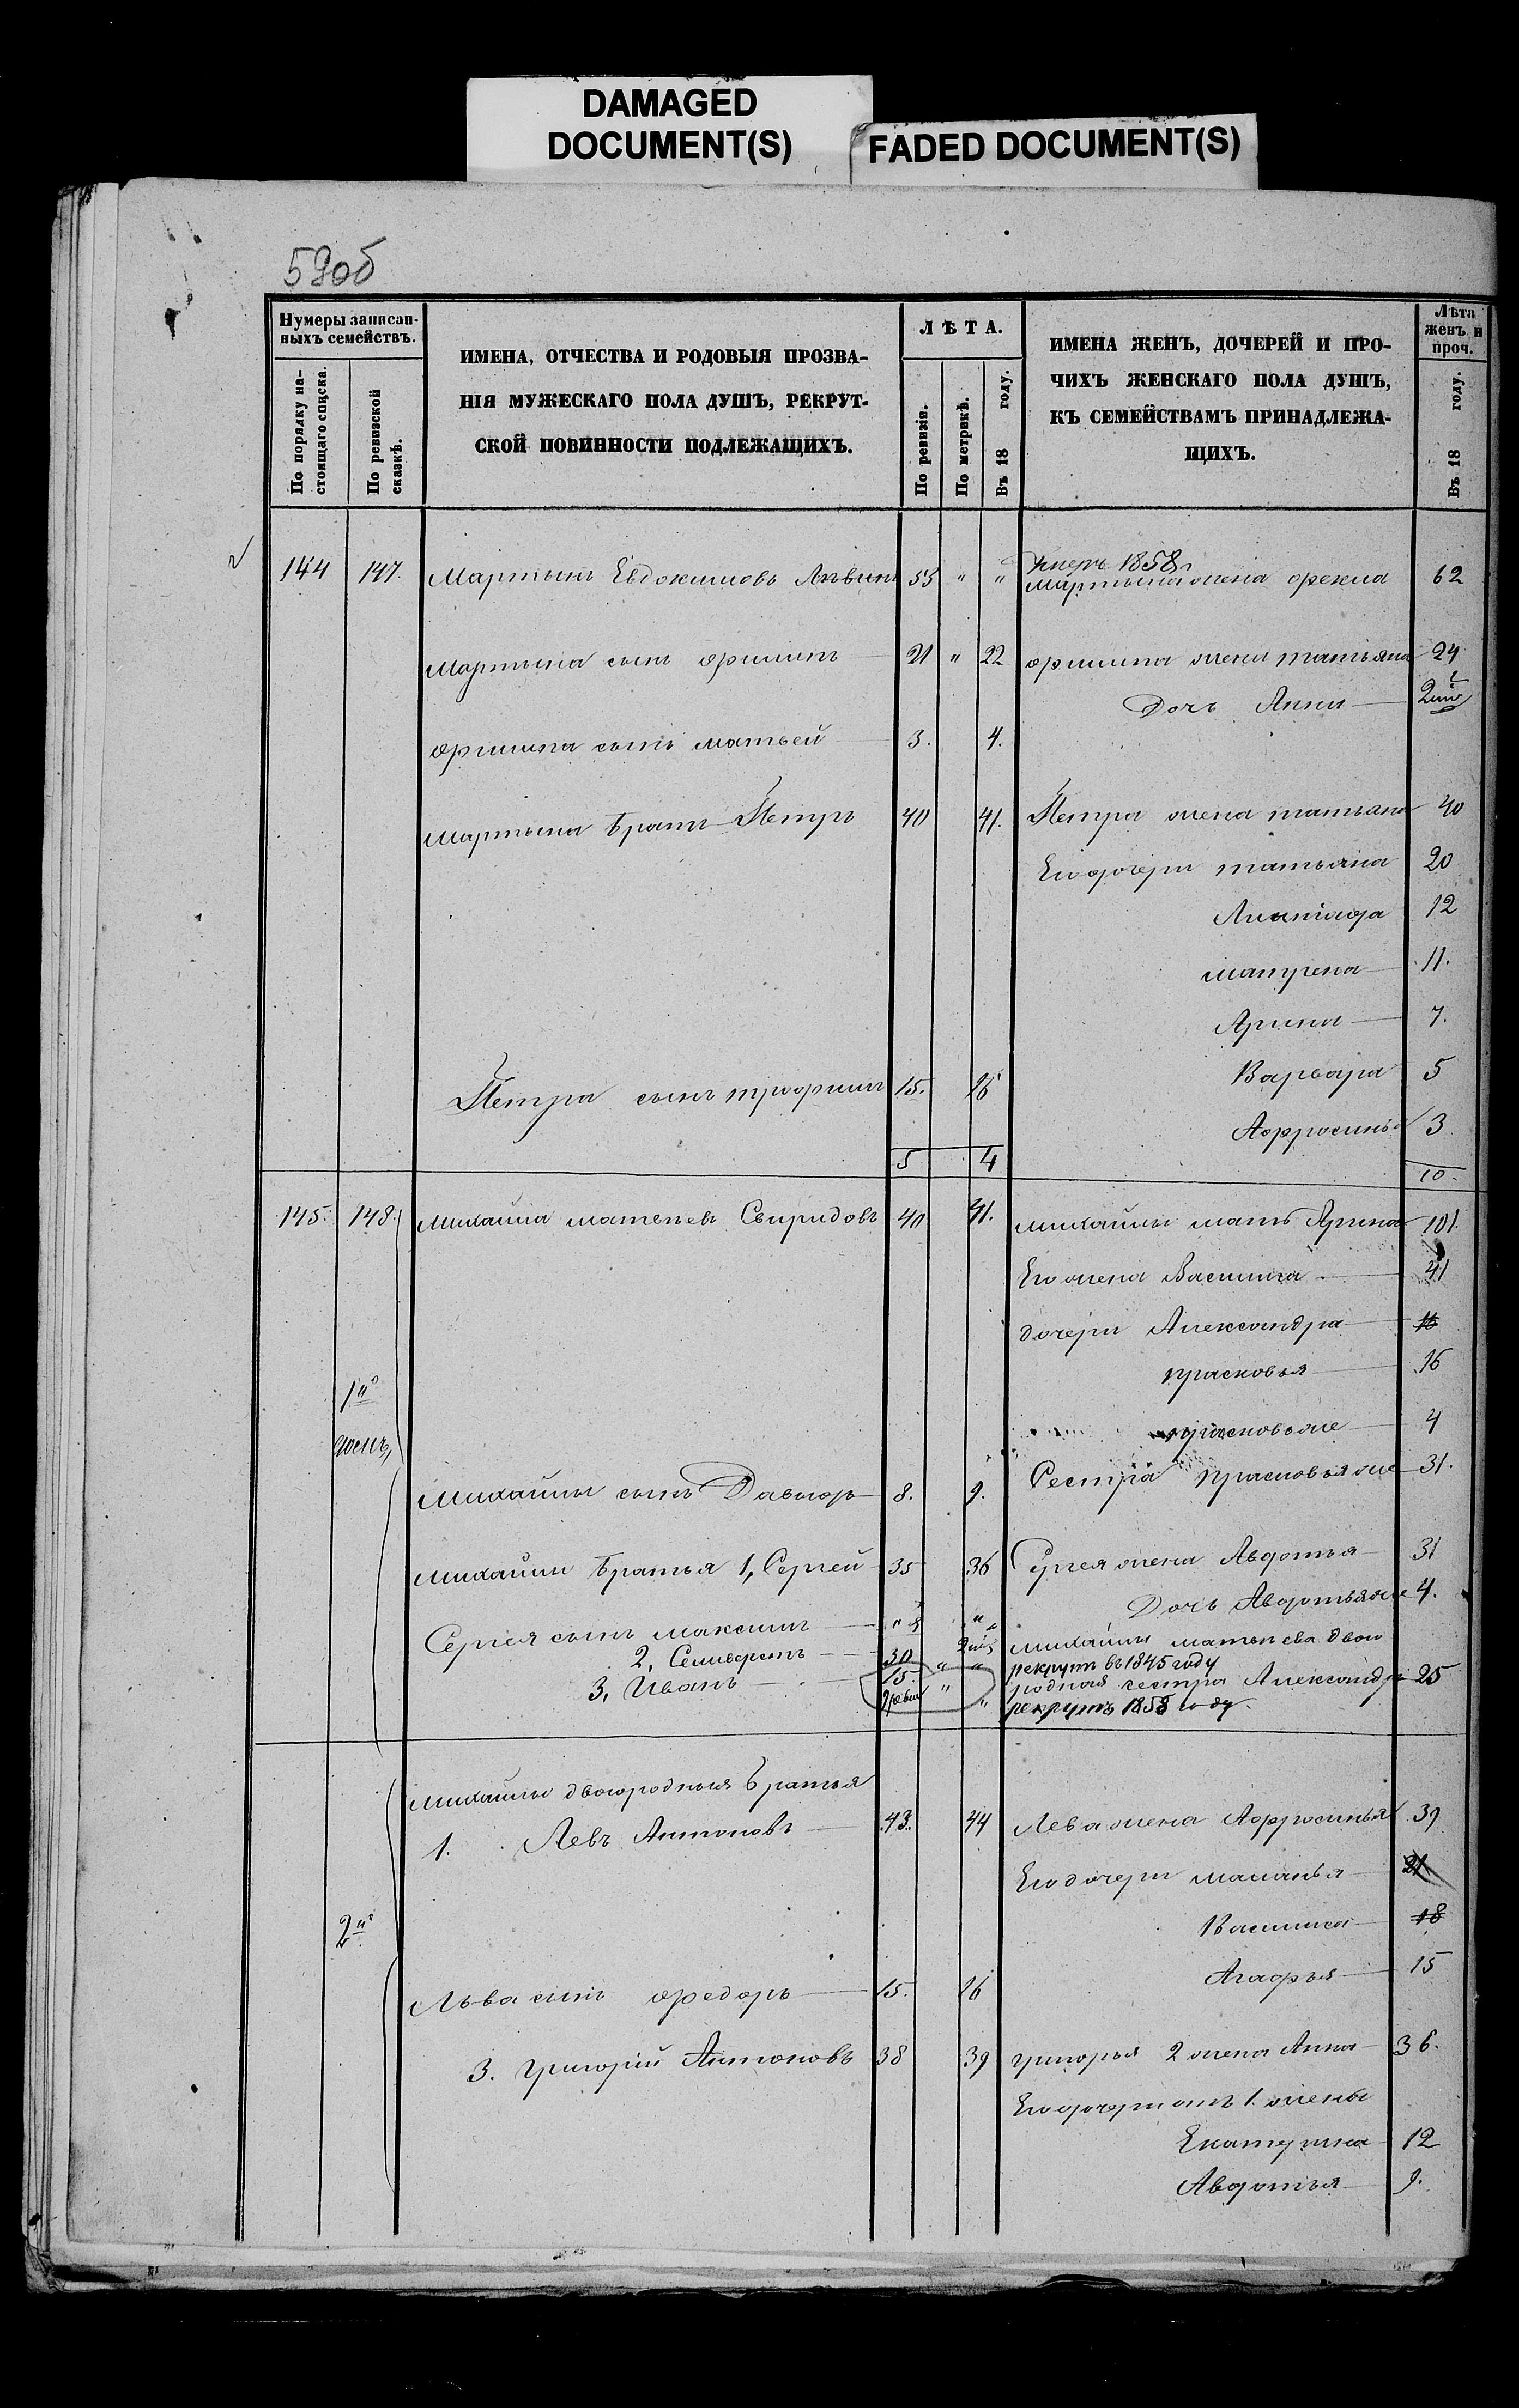 DAMAGED
DOCUMENT(S)
FADED DOCUMENT(S)
59об
Нумеры записан-
ныхъ семействъ.
По порядку на-
стоящаго списка.
По ревизской
сказкѣ.
ИМЕНА, ОТЧЕСТВА И РОДОВЫЯ ПРОЗВА-
НІЯ МУЖЕСКАГО ПОЛА ДУШЪ, РЕКРУТ-
СКОЙ ПОВИННОСТИ ПОДЛЕЖАЩИХЪ.
ЛѢТА.
По ревизіи.
По метрикѣ.
Въ 18 году.
ИМЕНА ЖЕНЪ, ДОЧЕРЕЙ И ПРО-
ЧИХЪ ЖЕНСКАГО ПОЛА ДУШЪ,
КЪ СЕМЕЙСТВАМЪ ПРИНАДЛЕЖА-
ЩИХЪ.
Лѣта
женъ и
проч.
Въ 18 году.
умеръ 1858
144 147. Мартынъ Евдокимовъ 55 " " Мартына жена Фекла 62
Мартына сынъ Филипъ 21 " 22 Филипа жена Татьяна 24
Дочь Анна
Филипа сынъ Матвей 3. 4.
Мартына Братъ Петръ 40 41. Петра жена Татьяна 40
Его дочери Татьяна 20
12
Матрена 11.
Арина 7.
Варвара 5
Петра сынъ Трофимъ 15. 16
Афросинья 3
5 4 10.
145. 148. Михайла Матвеевъ Свиридовъ 40 41. Михайлы мать Арина 101.
Его жена Василиса 41
дочери Александра
Прасковья 16
1й Прасковья же 4
домъ
Сестра Прасковья же 31.
Михайлы сынъ Давыдъ 8. 9.
Михайлы Братья 1, Сергей 35 36 Сергея жена Авдотья 31
Дочь Авдотья же 4.
Сергея сынъ Максимъ " "
Михайлы Матвеева двою
2, Селиверстъ 30 " " рекрутъ въ 1845 году
родная сестра Александра 25
3, Иванъ 15. " " рекрутъ 1858 году.
Михайлы двоюродныя Братья
1. Левъ Антоновъ 43. 44 Лева жена Афросинья 39
Его дочери Маланья 21
2й Василиса 18
Агафья 15
Льва сынъ Федоръ 15. 16
3. Григорій Антоновъ 38 39 Григорья 2 жена Анна 36.
Его дочери отъ 1. жены
Екатерина 12
Авдотья 9.